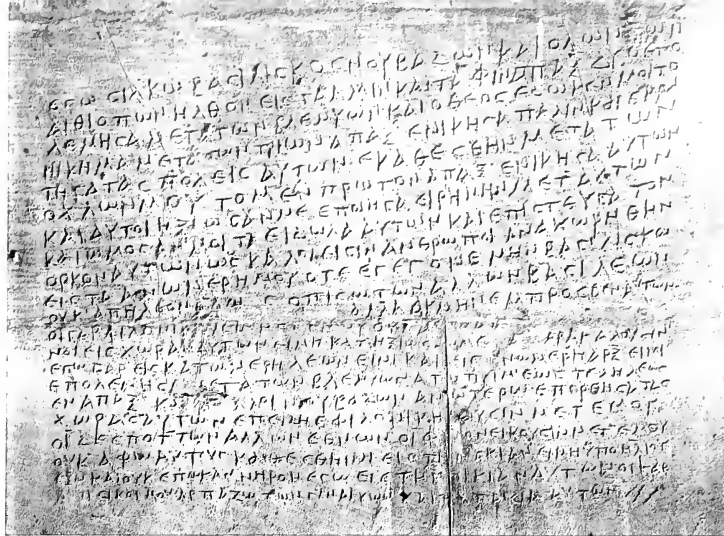 ΕΓΩ ϹΙΛΚΩ ΒΑϹΙΛΙϹΚΟϹ ΝΟΥΒΑΔΩΝ ΚΑΙ ΟΛΩΝ ΤΩΝ
ΑΙΘΙΟΠΩΝ ΗΛΘΟΝ ΕΙϹ ΤΑΛΜΙΝ ΚΑΙ ΤΑΦΙΝ ΑΠΑΞ ΔΥΟ ΕΠΟ
ΛΕΜΗϹΑ ΜΕΤΑ ΤΩΝ ΒΛΕΜΥΩΝ ΚΑΙ Ο ΘΕΟϹ ΕΔΩΚΕΝ ΜΟΙ ΤΟ
ΝΙΚΗΜΑ ΜΕΤΑ ΤΩΝ ΤΡΙΩΝ ΑΠΑΞ ΕΝΙΚΗϹΑ ΠΑΛΙΝ ΚΑΙ ΕΚΡΑ
ΤΗϹΑ ΤΑϹ ΠΟΛΕΙϹ ΑΥΤΩΝ ΕΚΑΘΕϹΘΗΝ ΜΕΤΑ ΤΩΝ
ΟΧΛΩΝ ΜΟΥ ΤΟ ΜΕΝ ΠΡΩΤΟΝ ΑΠΑΞ ΕΝΙΚΗϹΑ ΑΥΤΩΝ
ΚΑΙ ΑΥΤΟΙ ΗΞΙΩϹΑΝ ΜΕ ΕΠΟΙΗϹΑ ΕΙΡΗΝΗΝ ΜΕΤ ΑΥΤΩΝ
ΚΑΙ ΩΜΟϹΑΝ ΜΟΙ ΤΑ ΕΙΔΩΛΑ ΑΥΤΩΝ ΚΑΙ ΕΠΙϹΤΕΥϹΑ ΤΟΝ
ΟΡΚΟΝ ΑΥΤΩΝ ΩϹ ΚΑΛΟΙ ΕΙϹΙΝ ΑΝΘΡΩΠΟΙ ΑΝΑΧΩΡΗΘΗΝ
ΕΙϹ ΤΑ ΑΝΩ ΜΕΡΗ ΜΟΥ ΟΤΕ ΕΓΕΓΟΝΕΜΗΝ ΒΑϹΙΛΙϹΚΟϹ
ΟΥΚ ΑΠΗΛΘΟΝ ΟΛΩϹ ΟΠΙϹΩ ΤΩΝ ΑΛΛΩΝ ΒΑϹΙΛΕΩΝ
ΑΛΛΑ ΑΚΜΗΝ ΕΜΠΡΟϹΘΕΝ ΑΥΤΩΝ
ΟΙ ΓΑΡ ΦΙΛΟΝΙΚΟΥϹΙΝ ΜΕΤ ΕΜΟΥ ΟΥΚ ΑΦΩ
ΝΟΙ ΕΙϹ ΧΩΡΑΝ ΑΥΤΩΝ ΕΙ ΜΗ ΚΑΤΗΞΙΩϹΑΝ ΜΕ ΚΑΙ ΠΑΡΑΚΑΛΟΥϹΙΝ
ΕΓΩ ΓΑΡ ΕΙϹ ΚΑΤΩ ΜΕΡΗ ΛΕΩΝ ΕΙΜΙ ΚΑΙ ΕΙϹ ΑΝΩ ΜΕΡΗ ΑΡΞ ΕΙΜΙ
ΕΠΟΛΕΜΗϹΑ ΜΕΤΑ ΤΩΝ ΒΛΕΜΥΩΝ ΑΠΟ ΠΡΙΜΕΩϹ ΤΕΛΗΛΕΩϹ
ΕΝ ΑΠΑΞ ΚΑΙ ΝΟΥΒΑΔΩΝ ΑΝΩΤΕΡΩ ΕΠΟΡΘΗϹΑ ΤΑϹ
ΧΩΡΑϹ ΑΥΤΩΝ ΕΠΕΙΔΗ ΕΦΙΛΟΝΙΚΗϹΟΥϹΙΝ ΜΕΤ ΕΜΟΥ
ΟΙ ΔΕϹΠΟΤ ΤΩΝ ΑΛΛΩΝ ΕΘΝΩΝ ΟΙ ΦΙΛΟΝΕΙΚΟΥϹΙΝ ΜΕΤ ΕΜΟΥ
ΟΥΚ ΑΦΩ ΑΥΤΟΥϹ ΚΑΘΕϹΘΗΝΑΙ ΕΙϹ ΤΗΝ ϹΚΙΑΝ ΕΙ ΜΗ ΥΠΟ ΗΛΙΟΥ
ΚΑΙ ΟΥΚ ΕΠΩΚΑΝ ΝΗΡΟΝ ΕϹΩ ΕΙϹ ΤΗΝ ΟΙΚΙΑΝ ΑΥΤΩΝ ΟΙ ΓΑΡ
ΜΟΥ ΑΡΠΑΖΩ ΤΩΝ ΓΥΝΑΙΚΩΝ ΚΑΙ ΤΑ ΠΑΙΔΙΑ ΑΥΤΩΝ